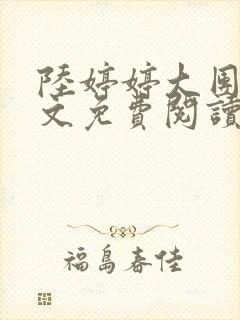 陸婷婷大團
文免費閱讀
福島春佳